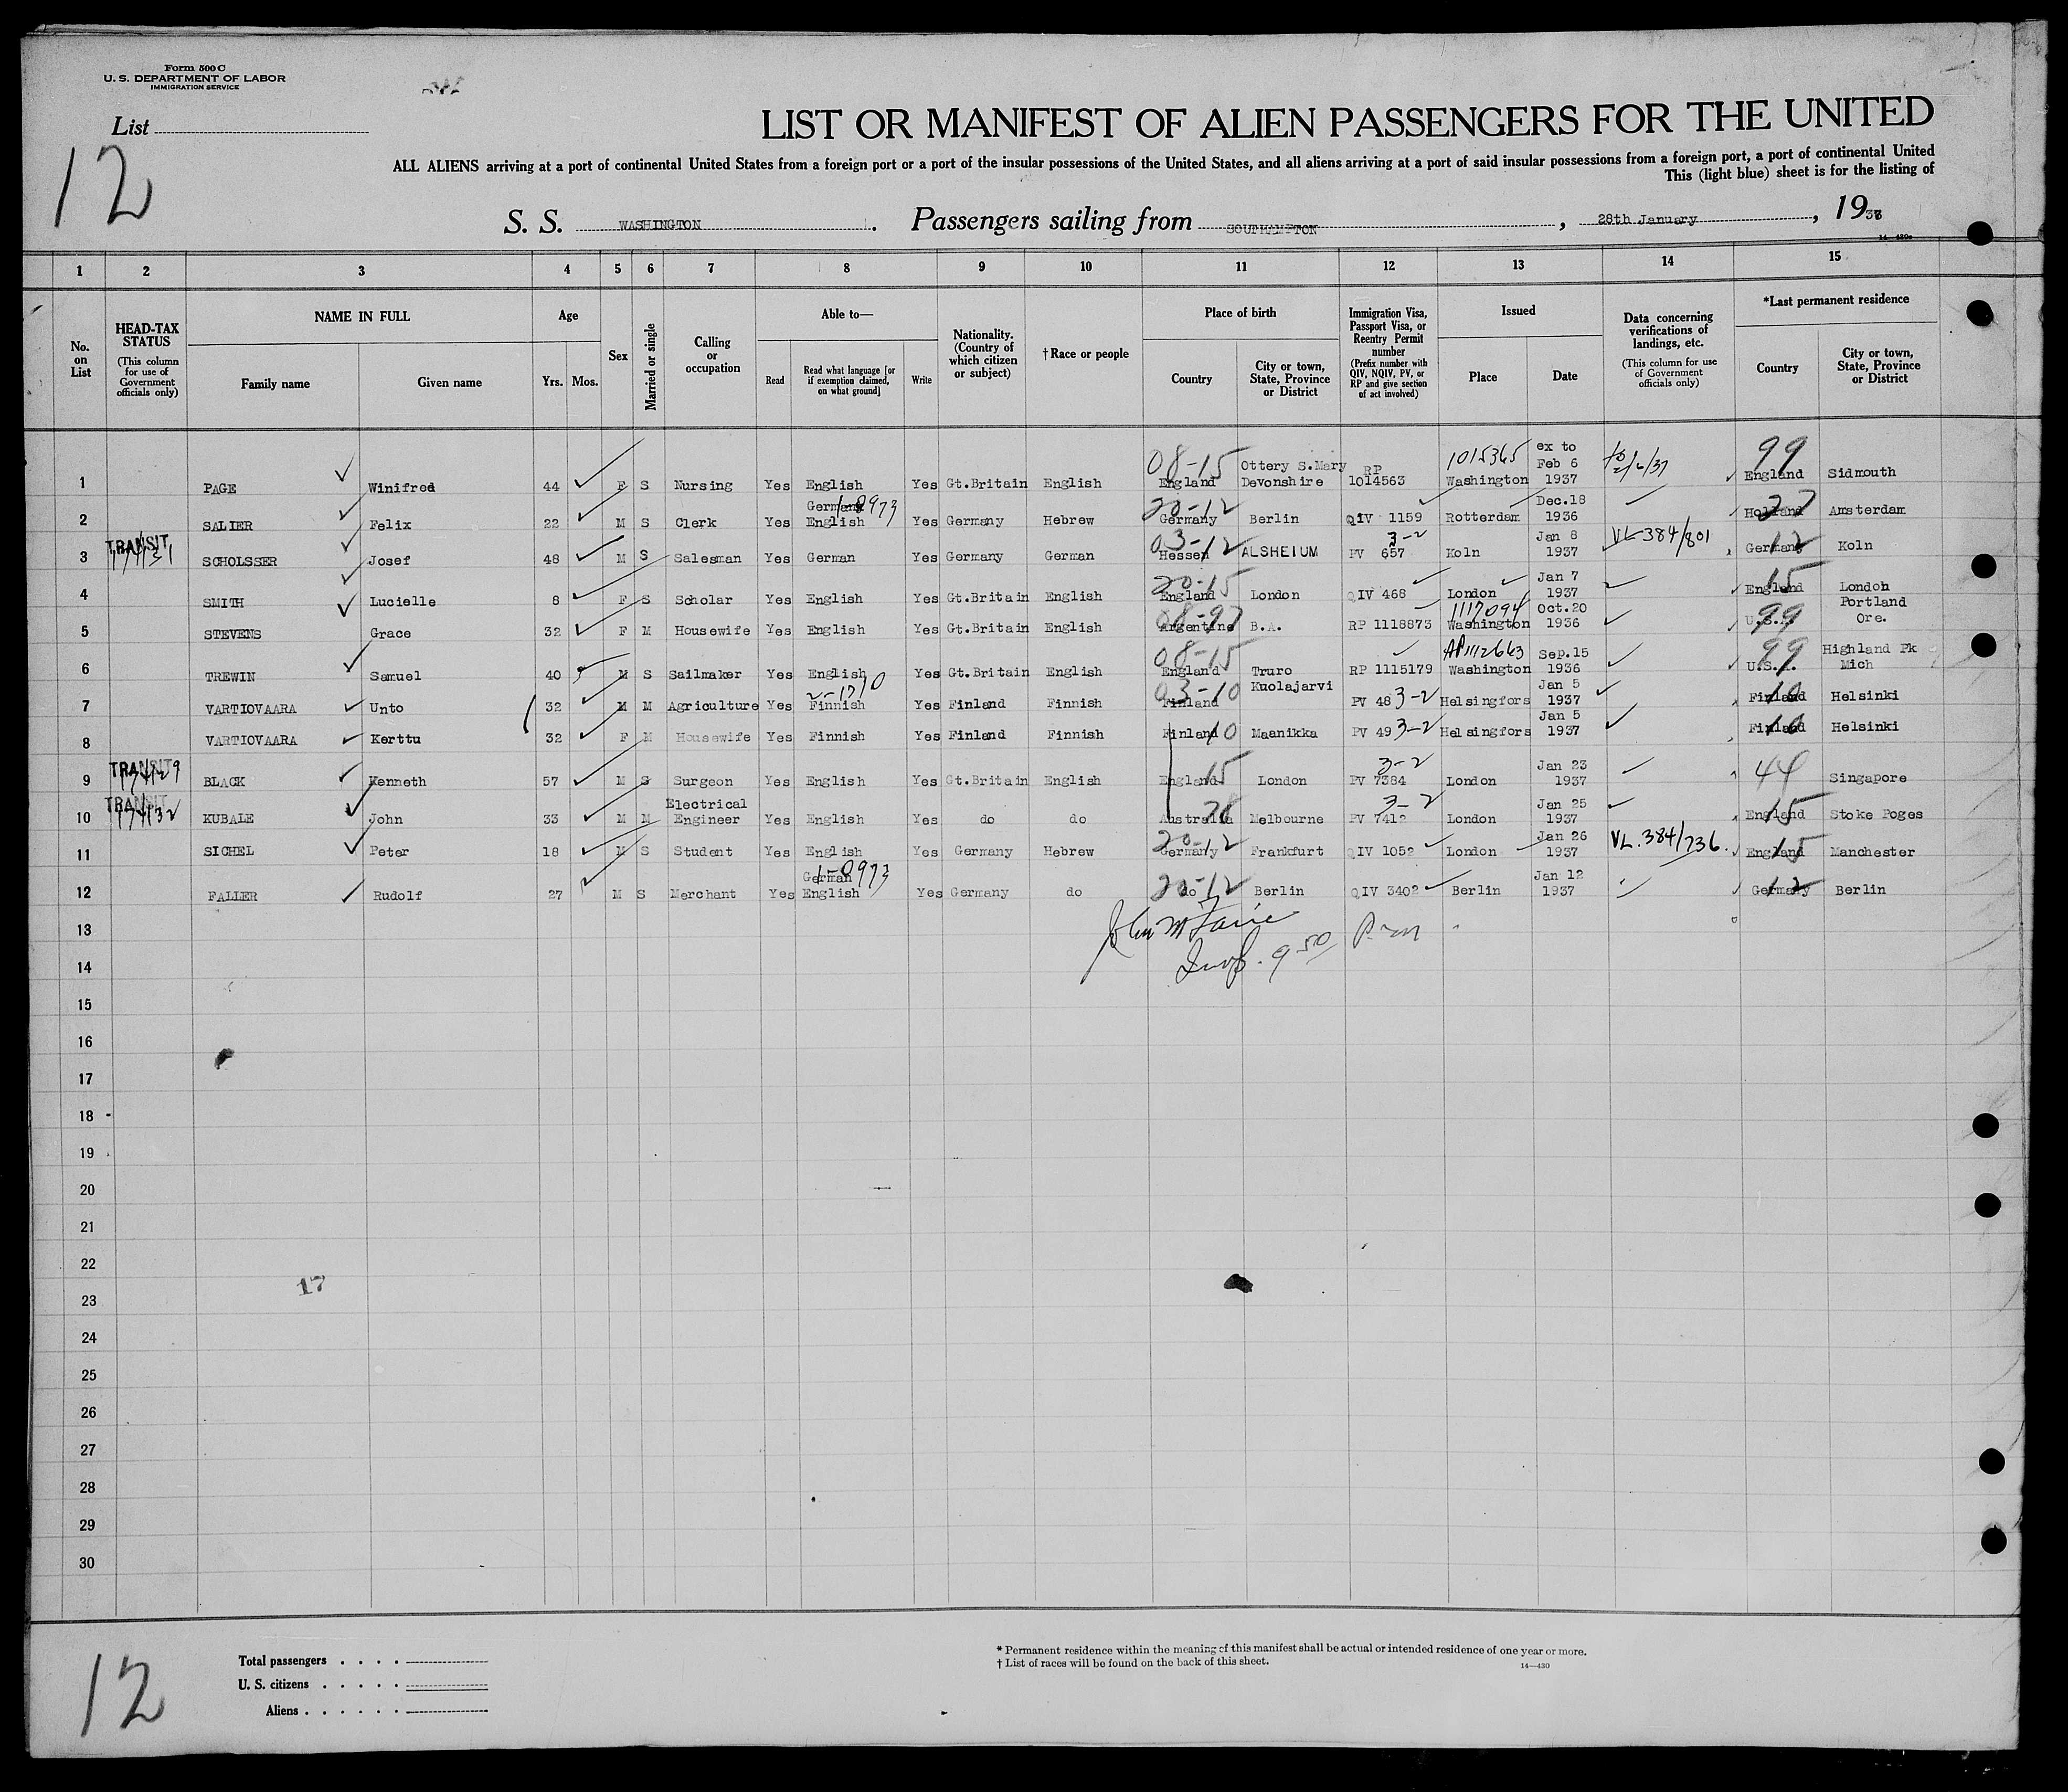 Form 500 C
U. S. DEPARTMENT OF LABOR
IMMIGRATION SERVICE
List
12
LIST OR MANIFEST OF ALIEN PASSENGERS FOR THE UNITED
ALL ALIENS arriving at a port of continental United States from a foreign port or a port of the insular possessions of the United States, and all aliens arriving at a port of said insular possessions from a foreign port, a port of continental United
This (light blue) sheet is for the listing of
S. S. WASHINGTON. Passengers sailing from SOUTHAMPTON, 28th January, 1937
1 2 3 4 5 6 7 8 9 10 11 12 13 14 15
No. on List
HEAD-TAX STATUS (This column for use of Government officials only)
NAME IN FULL
Family name Given name
Age
Yrs. Mos.
Sex
Married or single
Calling or occupation
Able to—
Read Read what language [or if exemption claimed, on what ground] Write
Nationality. (Country of which citizen or subject)
† Race or people
Place of birth
Country City or town, State, Province or District
Immigration Visa, Passport Visa, or Reentry Permit number (Prefix number with QIV, NQIV, PV, or RP and give section of act involved)
Issued
Place Date
Data concerning verifications of landings, etc. (This column for use of Government officials only)
*Last permanent residence
Country City or town, State, Province or District
1 PAGE Winifred 44 F S Nursing Yes English Yes Gt.Britain English 08-15 England Ottery S.Mary Devonshire RP 1014563 1015365 Washington ex to Feb 6 1937 to 2/6/37 99 England Sidmouth
2 SALIER Felix 22 M S Clerk Yes German English 1-0973 Yes Germany Hebrew 20-12 Germany Berlin QIV 1159 Rotterdam Dec.18 1936 27 Holland Amsterdam
3 TRANSIT SCHOLSSER Josef 48 M S Salesman Yes German Yes Germany German 03-12 Hessen ALSHEIUM PV 657 3-2 Koln Jan 8 1937 VL 384/801 12 Germany Koln
4 SMITH Lucielle 8 F S Scholar Yes English Yes Gt.Britain English 20-15 England London QIV 468 London Jan 7 1937 15 England London
5 STEVENS Grace 32 F M Housewife Yes English Yes Gt.Britain English 08-97 Argentine B.A. RP 1118873 1117094 Washington Oct.20 1936 99 U.S.A. Portland Ore.
6 TREWIN Samuel 40 M S Sailmaker Yes English Yes Gt.Britain English 08-15 England Truro RP 1115179 AP1112663 Washington Sep.15 1936 99 U.S.A. Highland Pk Mich
7 VARTIOVAARA Unto 32 M M Agriculture Yes Finnish Yes Finland Finnish 03-10 Finland Kuolajarvi PV 48 3-2 Helsingfors Jan 5 1937 10 Finland Helsinki
8 VARTIOVAARA Kerttu 32 F M Housewife Yes Finnish Yes Finland Finnish Finland 10 Maanikka PV 49 3-2 Helsingfors Jan 5 1937 10 Finland Helsinki
9 TRANSIT BLACK Kenneth 57 M S Surgeon Yes English Yes Gt.Britain English England 15 London PV 7384 3-2 London Jan 23 1937 44 Singapore
10 TRANSIT KUBALE John 33 M M Electrical Engineer Yes English Yes do do Australia Melbourne PV 7412 3-2 London Jan 25 1937 15 England Stoke Poges
11 SICHEL Peter 18 M S Student Yes English Yes Germany Hebrew 20-12 Germany Frankfurt QIV 1052 London Jan 26 1937 VL.384/736. 15 England Manchester
12 FALLER Rudolf 27 M S Merchant Yes German English 1-0973 Yes Germany do 20-12 do Berlin QIV 3402 Berlin Jan 12 1937 12 Germany Berlin
13
14
15
16
17
18
19
20
21
22
17
23
24
25
26
27
28
29
30
Total passengers
U. S. citizens
Aliens
12
* Permanent residence within the meaning of this manifest shall be actual or intended residence of one year or more.
† List of races will be found on the back of this sheet.
14—430